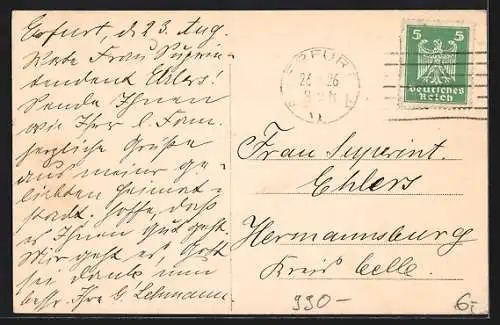 Erfurt, d 23. Aug.
Werte Frau Superin-
tendent Ehlers!
Sende Ihnen
wie Ihrer l. Fam.
herzliche Grüße
aus meiner ge-
liebten Heimat-
stadt. Hoffe, daß
es Ihnen gut geht.
Mir geht es, Gott
sei dank nun
bessr. Ihre G. Lehmann.
ERFURT
26
5 5
Deutsches
Reich
Frau Superint.
Ehlers
Hermannsburg
Kreis Celle.
990-
6,-